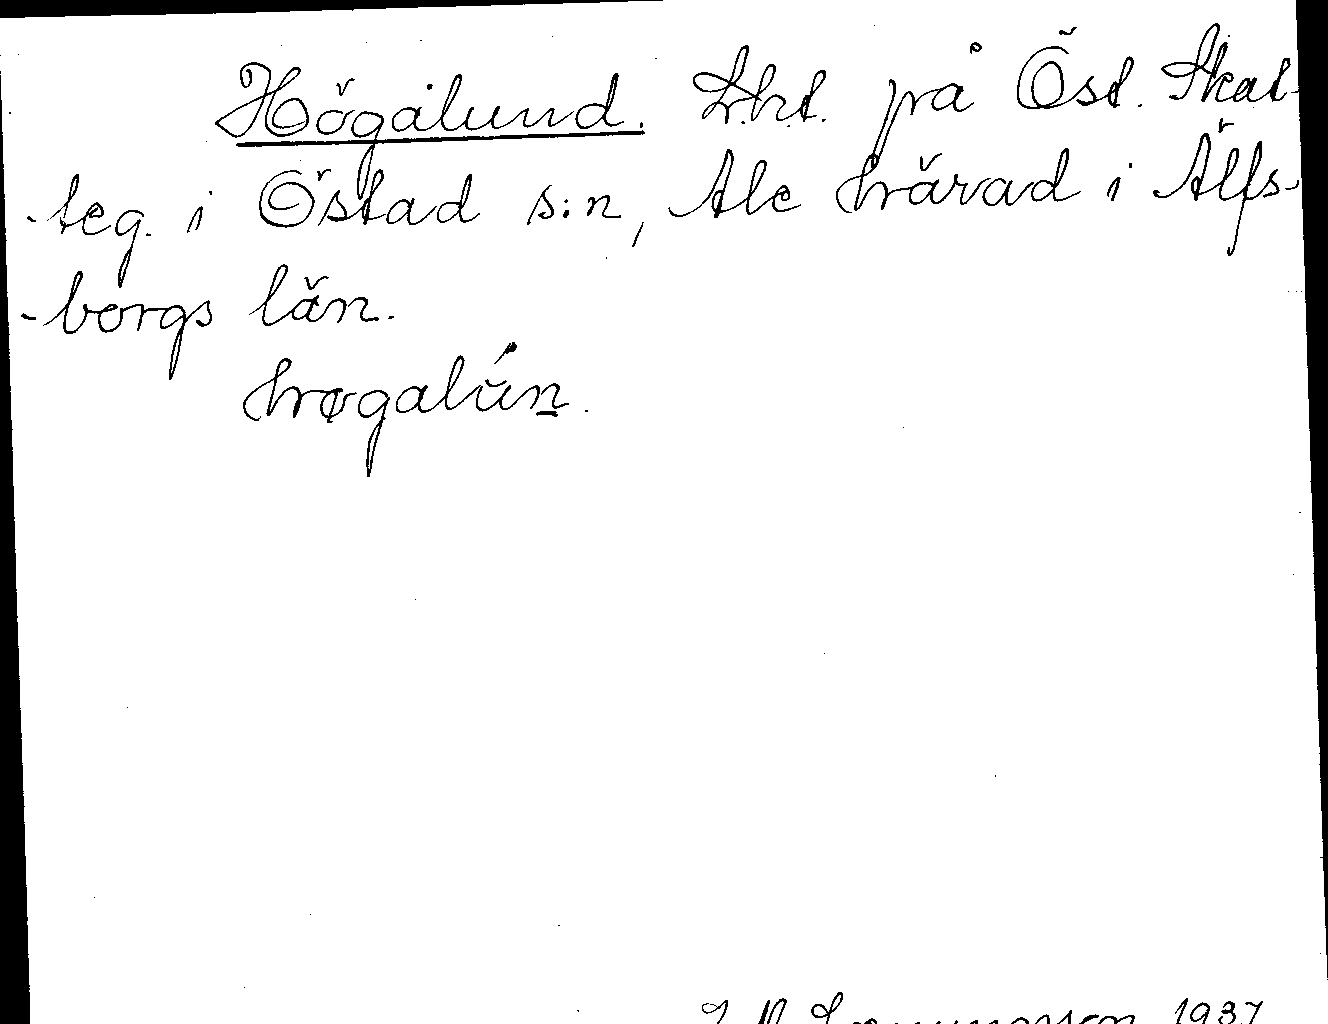 Högalund. Lht. på Öst. Skat-
-teg. i Östad s:n, Ale härad i Älfs-
-borgs län.
høgalún.
1937